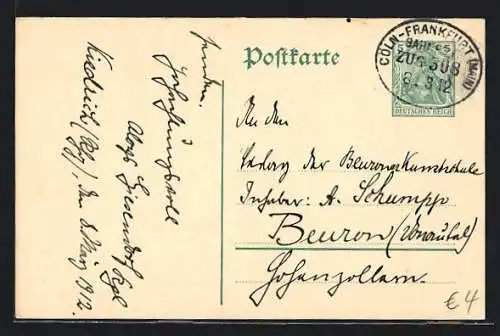 senden.
Hochachtungsvoll
Aloys
Kiedrich (Rhg), den 8. März 1912.
Postkarte
CÖLN-FRANKFURT (MAIN)
BAHNPOST
ZUG 308
8 3 12
DEUTSCHES REICH
An den
Verlag der Beuroner Kunstschule
Inhaber: A. Schumpp
Beuron (Donautal)
Hohenzollern.
€4